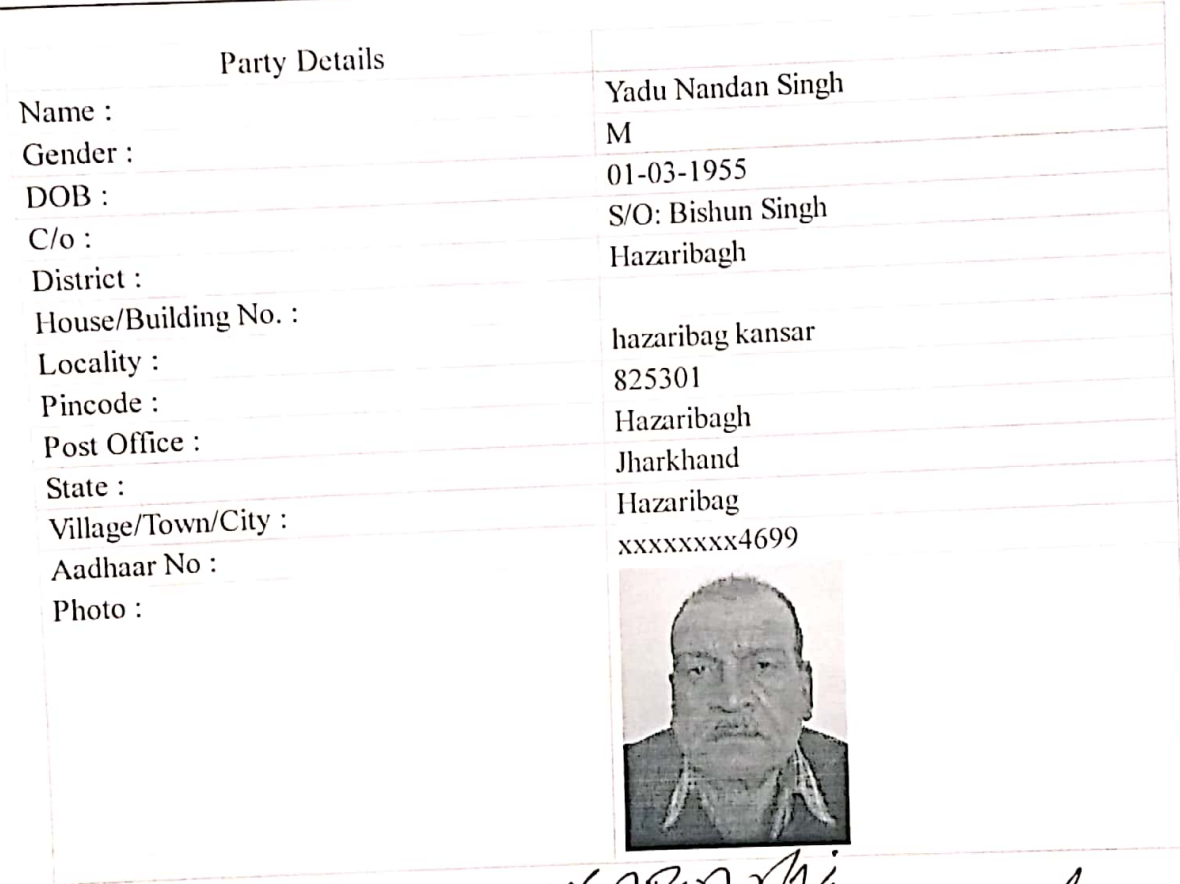 Party Details
Name : Yadu Nandan Singh
Gender : M
DOB : 01-03-1955
C/o : S/O: Bishun Singh
District : Hazaribagh
House/Building No. :
Locality : hazaribag kansar
Pincode : 825301
Post Office : Hazaribagh
State : Jharkhand
Village/Town/City : Hazaribag
Aadhaar No : xxxxxxxx4699
Photo :